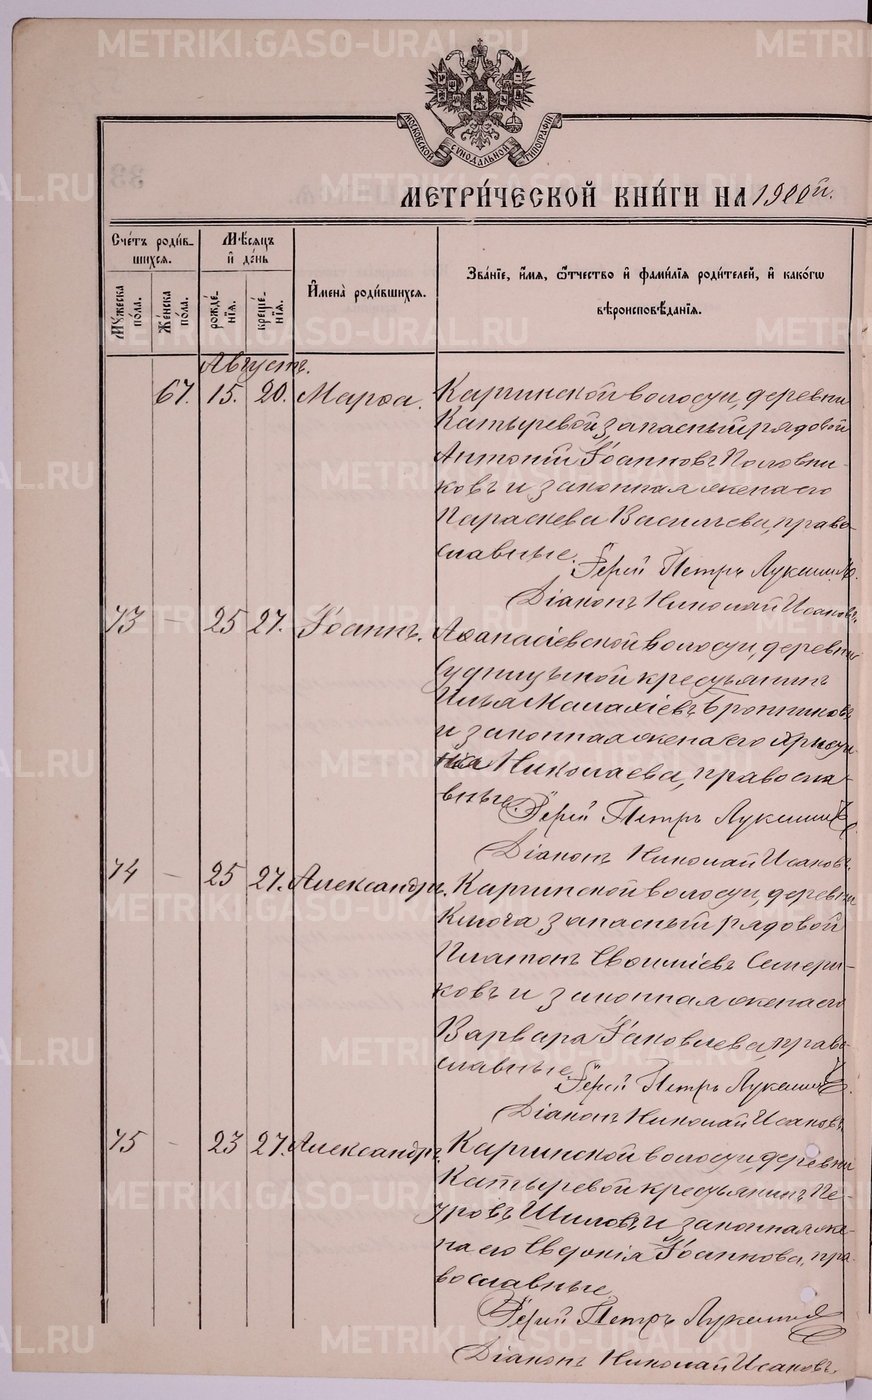 МОСКОВСКОЙ СѴНОДАЛЬНОЙ ТИПОГРАФІИ
МЕТРИ́ЧЕСКОЙ КНИ́ГИ НА 1900й.
Счётъ роди́вшихся.
Мꙋжеска по́ла.
Же́нска по́ла.
Мѣ́сяцъ и҆ де́нь
рожде́нїя.
креще́нїя.
И҆мена̀ роди́вшихся.
Зва́нїе, и҆́мя, ѻ҆́тчество и҆ фамѝлїѧ роди́телей, и҆ како́гѡ
вѣроисповѣ́данїя.
Августъ.
67. 15. 20. Марѳа. Каргинской волости, деревни
Катыревой запасный рядовой
Антоній Іоанновъ Половни-
ковъ и законная жена его
Параскева Васильева, право-
славные.
Іерей Петръ Лукинъ
Діаконъ Николай Исаковъ.
73 - 25 27. Іоаннъ. Аѳанасіевской волости, деревни
крестьянинъ
Илья Малахіевъ Бронниковъ
и законная жена его Христи-
на Николаева, правосла-
вные.
Іерей Петръ
Діаконъ Николай Исаковъ.
74 - 25 27. Александръ. Каргинской волости, деревни
Ключа запасный рядовой
Платонъ Семери-
ковъ и законная жена его
Варвара Іаковлева, право-
славные.
Іерей Петръ
Діаконъ Николай Исаковъ.
75 - 23 27. Александръ. Каргинской волости, деревни
Катыревой крестьянинъ Пе-
тровъ Шиловъ и законная же-
на его Іоаннова, пра-
вославные.
Іерей Петръ
Діаконъ Николай Исаковъ.
METRIKI.GASO-URAL.RU